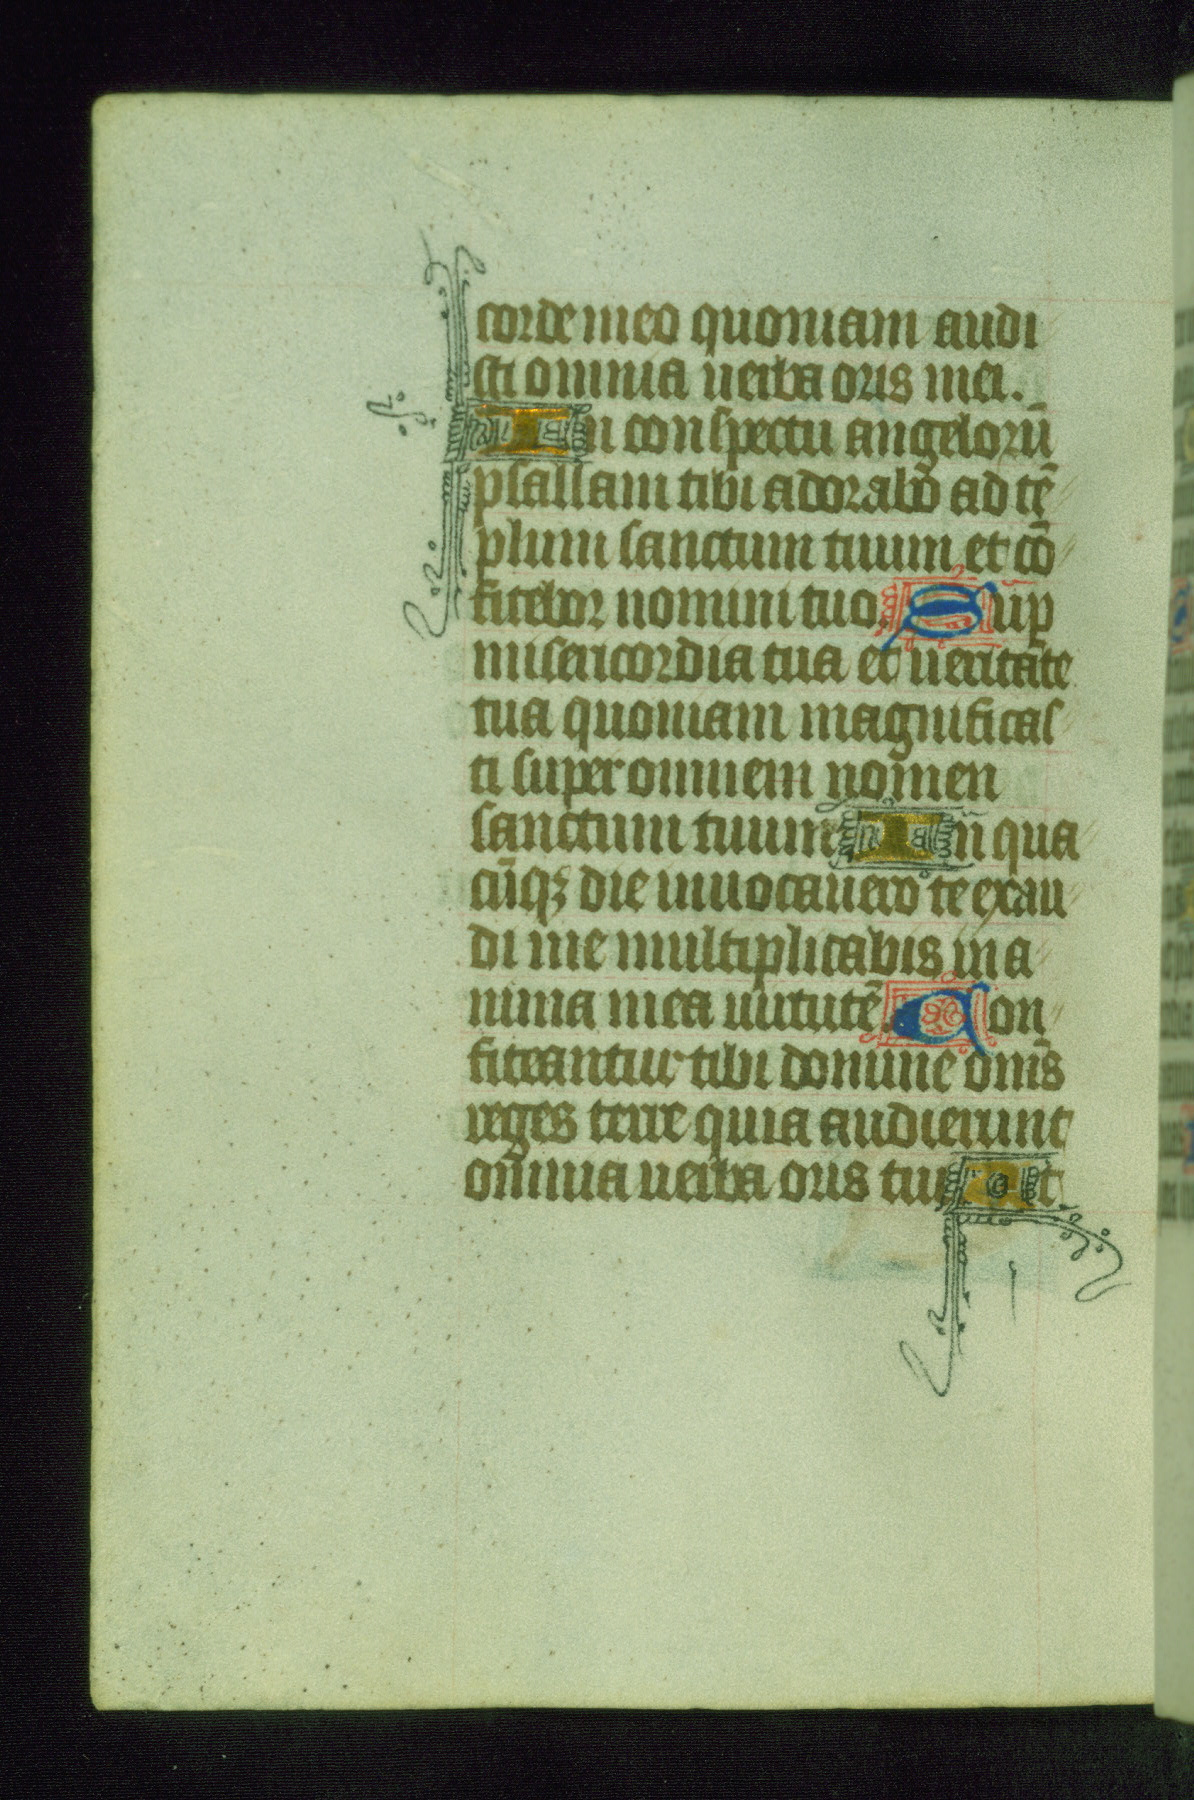 corde meo quoniam audi
sti omnia uerba oris mei.
In conspectu angelorū
psallam tibi adorabo ad tē
plum sanctum tuum et cō
fitebor nomini tuo. Sup
misericordia tua et ueritate
tua quoniam magnificas
ti super omnem nomen
sanctum tuum In qua
cūqꝫ die inuocauero te exau
di me multiplicabis in a
nima mea uirtutē. Con
fiteantur tibi domine om̄s
reges terre quia audierunt
omnia uerba oris tui Et